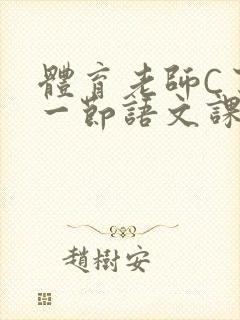 體育老師C
一節語文課
趙樹安